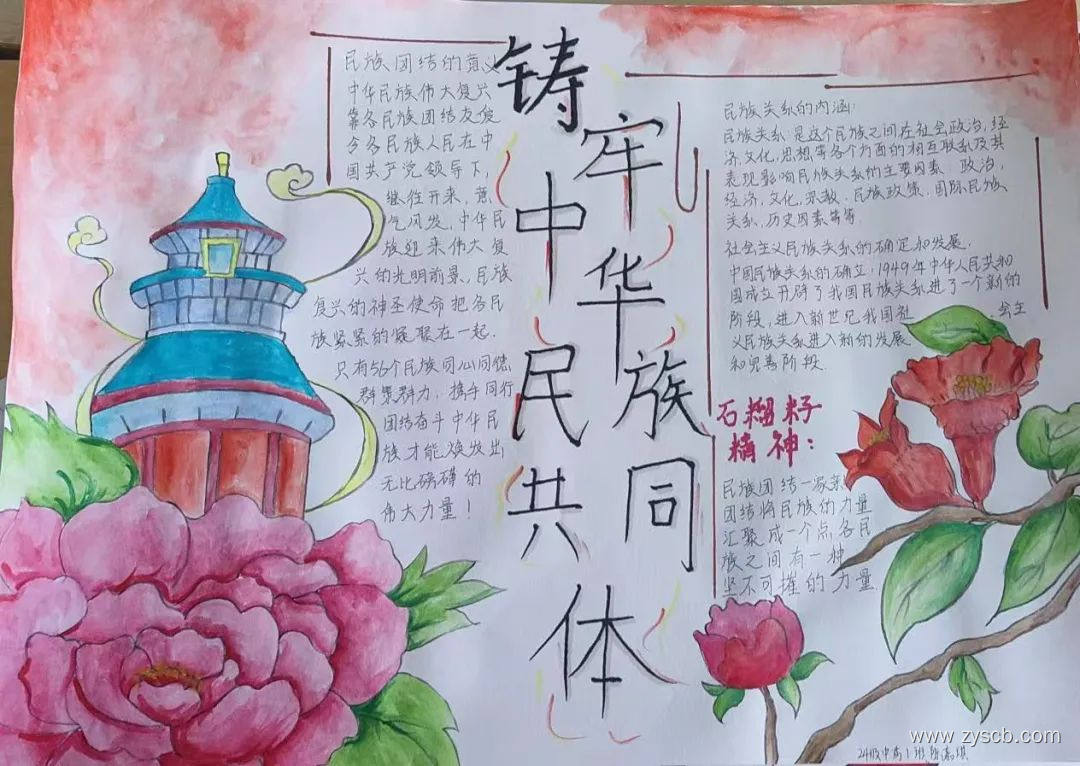 铸牢中华民族共同体
民族团结的意义
中华民族伟大复兴
靠各民族团结友爱
今各民族人民在中
国共产党领导下,
继往开来,意
气风发,中华民
族迎来伟大复
兴的光明前景、民族
复兴的神圣使命把各民
族紧紧的凝聚在一起.
只有56个民族同心同德,
群策群力,携手同行
团结奋斗中华民
族才能焕发出
无比磅礴的
伟大力量!
民族关系的内涵:
民族关系是这个民族之间在社会政治,经
济,文化,思想等各个方面的相互联系及其
表现影响民族关系的主要因素 政治,
经济,文化,宗教.民族政策,国际民族
关系,历史因素等等
社会主义民族关系的确定和发展.
中国民族关系的确立:1949年中华人民共和
国成立开辟了我国民族关系进了一个新的
阶段,进入新世纪我国社 会主
义民族关系进入新的发展
和完善阶段
石榴籽
精神:
民族团结一家亲
团结将民族的力量
汇聚成一个点各民
族之间有一种
坚不可摧的力量
24级中高1班
www.zyscb.com